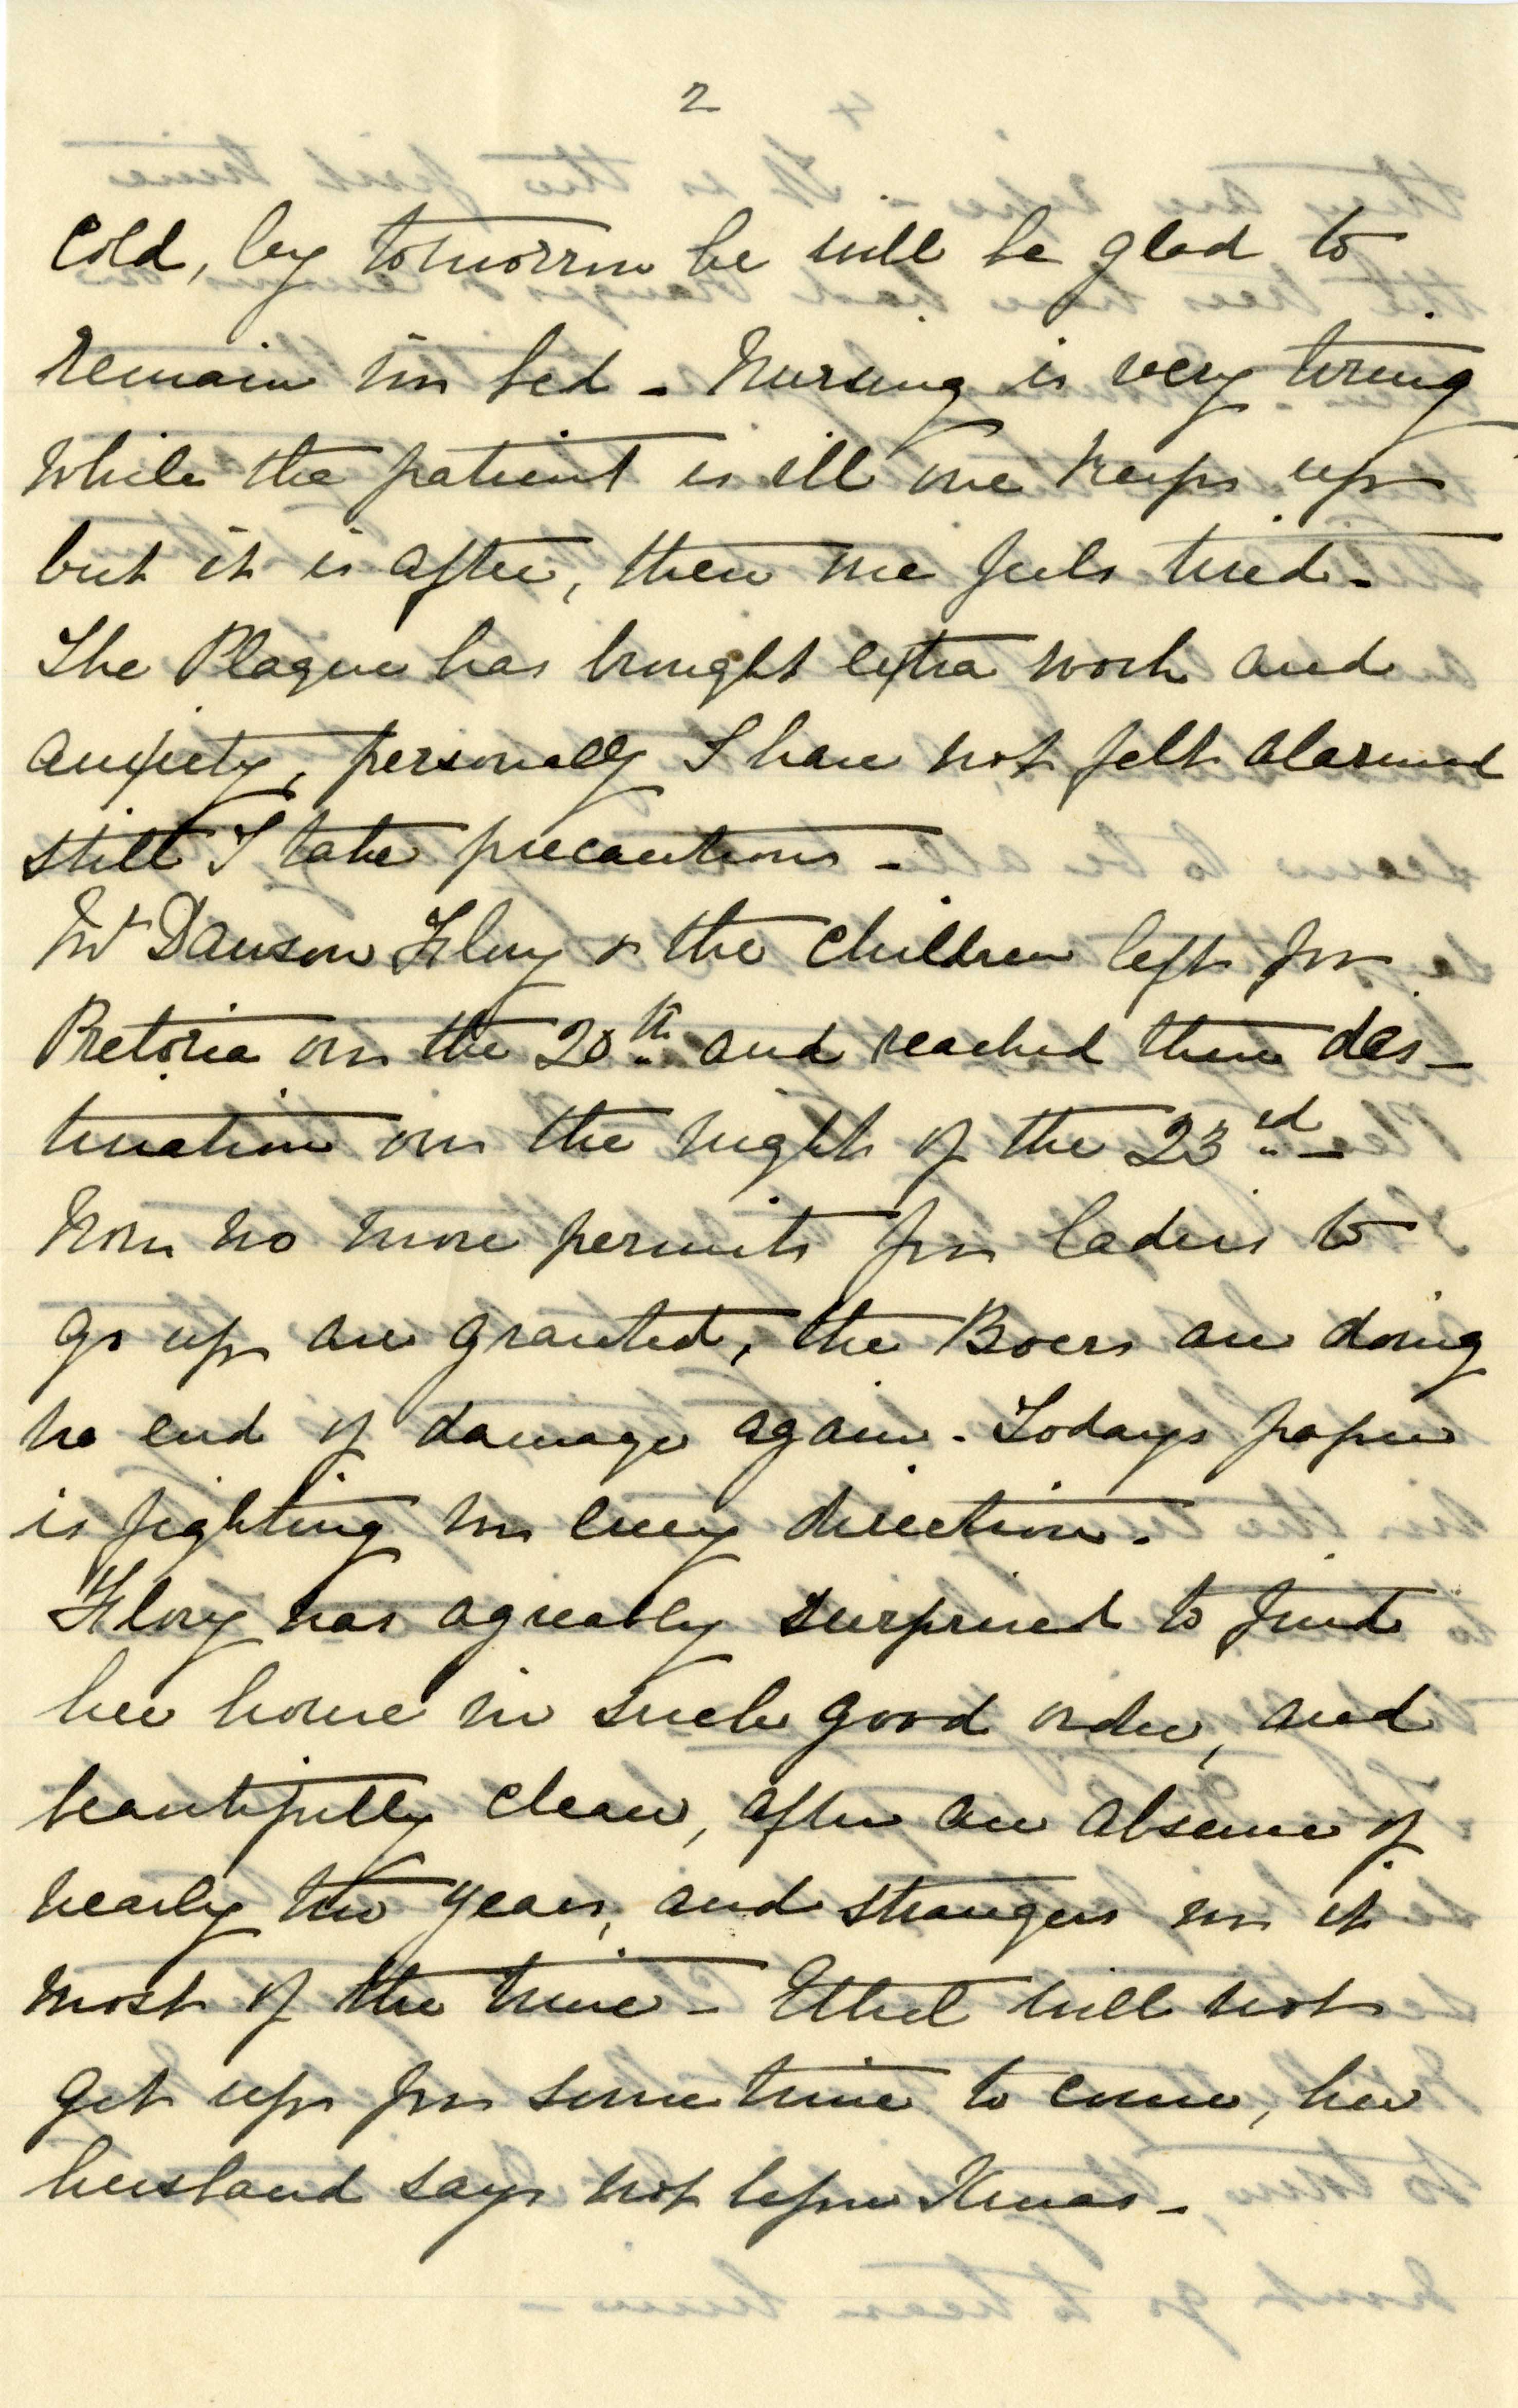 2
cold, by tomorrow he will be glad to
remain in bed - Nursing is very tiring
while the patient is ill one keeps up
but it is after, then one feels tired -
The Plague has brought extra work and
anxiety, personally I have not felt alarmed
still I take precautions -
Mr Dawson Flory & the children left for
Pretoria on the 20th and reached their des-
tination on the night of the 23rd -
Now no more permits for ladies to
go up are granted, the Boers are doing
no end of damage again. Todays paper
is fighting in every direction.
Flory was agreably surprised to find
her house in such good order, and
beautifully clean, after an absence of
nearly two years, and strangers in it
most of the time - Ethel will not
get up for some time to come, her
husband says not before Xmas -